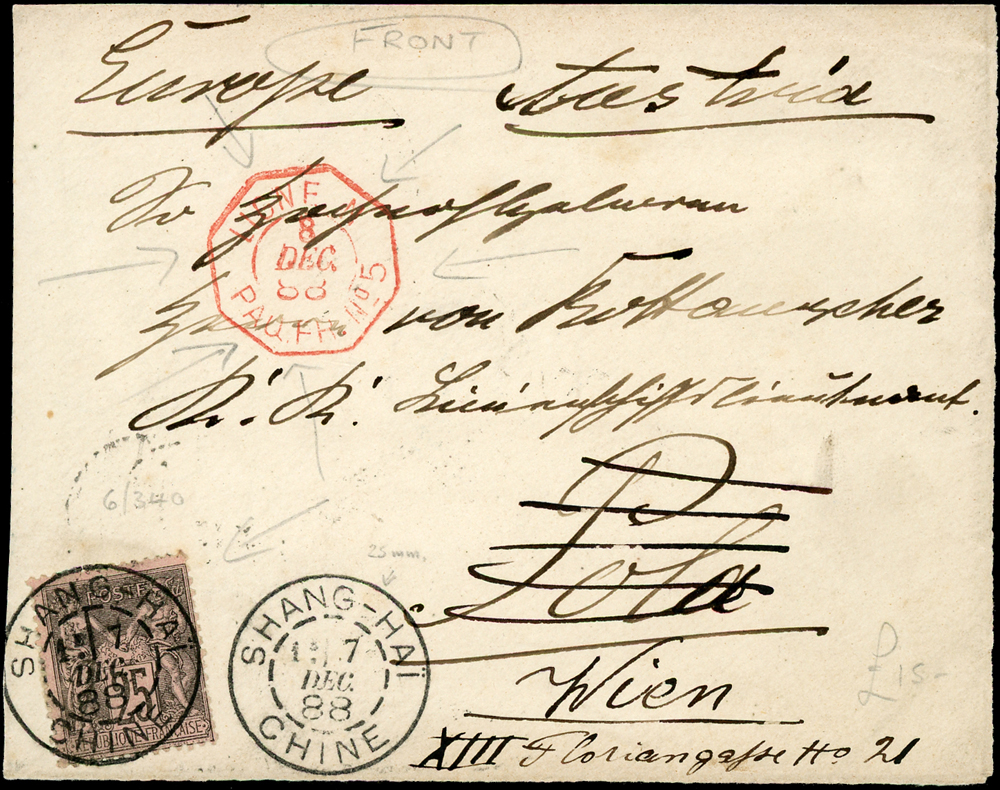 FRONT
Europe Austria
LIGNE N
8
DEC.
88
PAQ. FR. No 5
Sr Hochwohlgeboren
Herrn von Rottauscher
K. K. Linienschiffslieutenant.
6/340
25 mm.
Pola
SHANG-HAÏ
7
DEC.
88
CHINE
POSTE
25
REPUBLIQUE FRANÇAISE
SHANG-HAÏ
7
DEC.
88
CHINE
£15-
Wien
XIII Floriangasse No 21